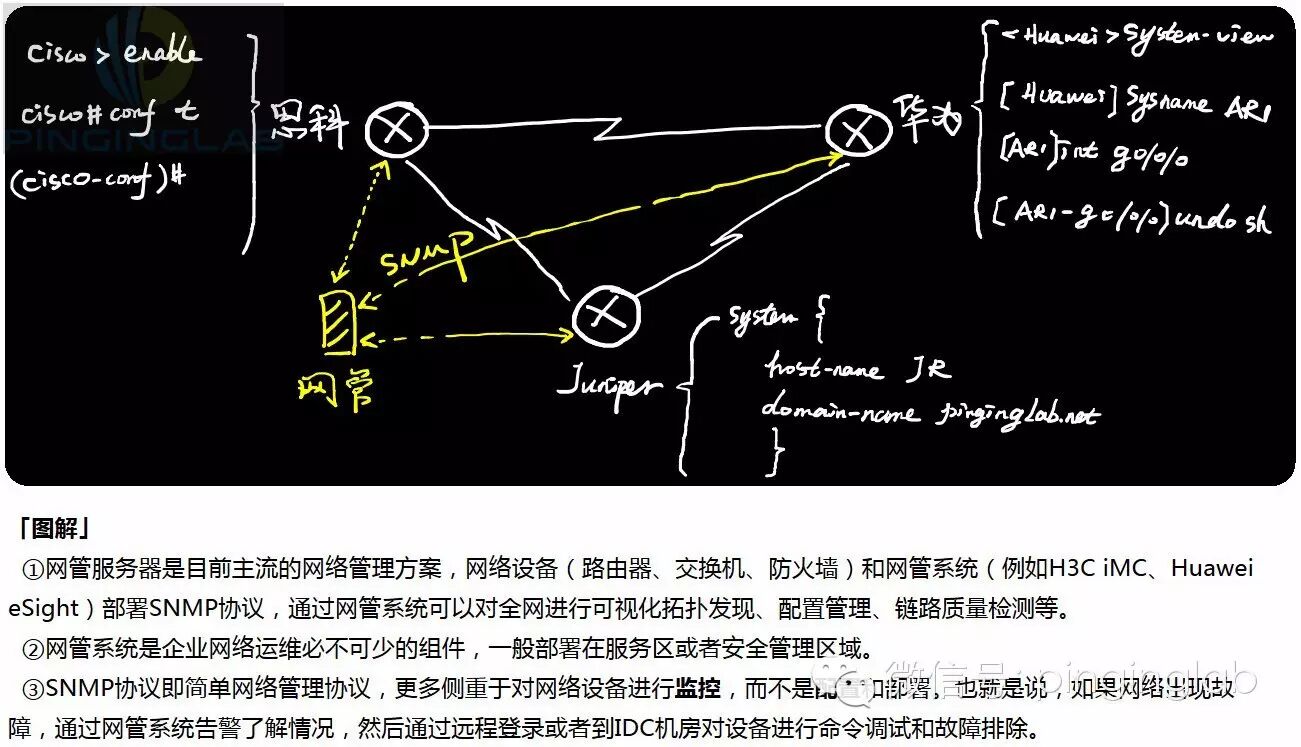 cisco > enable
cisco# conf t
(cisco-conf)#
PINGINGLAB
思科
华为
<Huawei>System-view
[Huawei] Sysname AR1
[AR1]int g0/0/0
[AR1-g0/0/0]undo sh
SNMP
网管
Juniper
system {
host-name JR
domain-name pinginglab.net
}
「图解」
①网管服务器是目前主流的网络管理方案，网络设备（路由器、交换机、防火墙）和网管系统（例如H3C iMC、Huawei
eSight）部署SNMP协议，通过网管系统可以对全网进行可视化拓扑发现、配置管理、链路质量检测等。
②网管系统是企业网络运维必不可少的组件，一般部署在服务区或者安全管理区域。
③SNMP协议即简单网络管理协议，更多侧重于对网络设备进行监控，而不是配置和部署。也就是说，如果网络出现故
障，通过网管系统告警了解情况，然后通过远程登录或者到IDC机房对设备进行命令调试和故障排除。
微信号: pinginglab